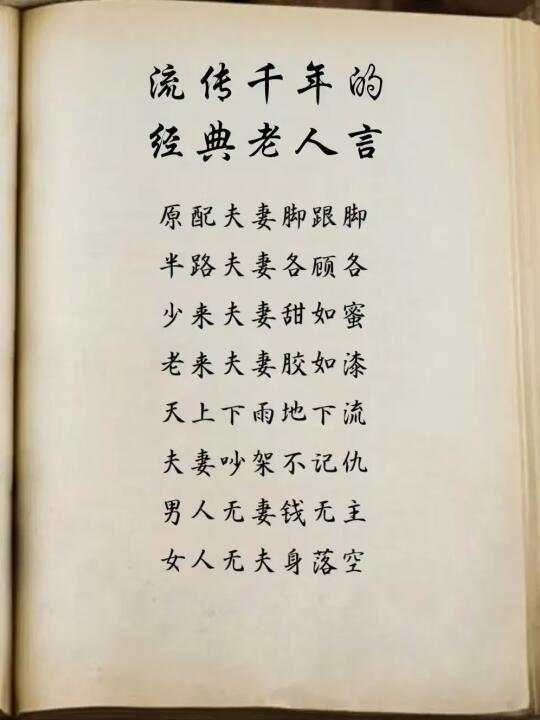 流传千年的
经典老人言
原配夫妻脚跟脚
半路夫妻各顾各
少来夫妻甜如蜜
老来夫妻胶如漆
天上下雨地下流
夫妻吵架不记仇
男人无妻钱无主
女人无夫身落空